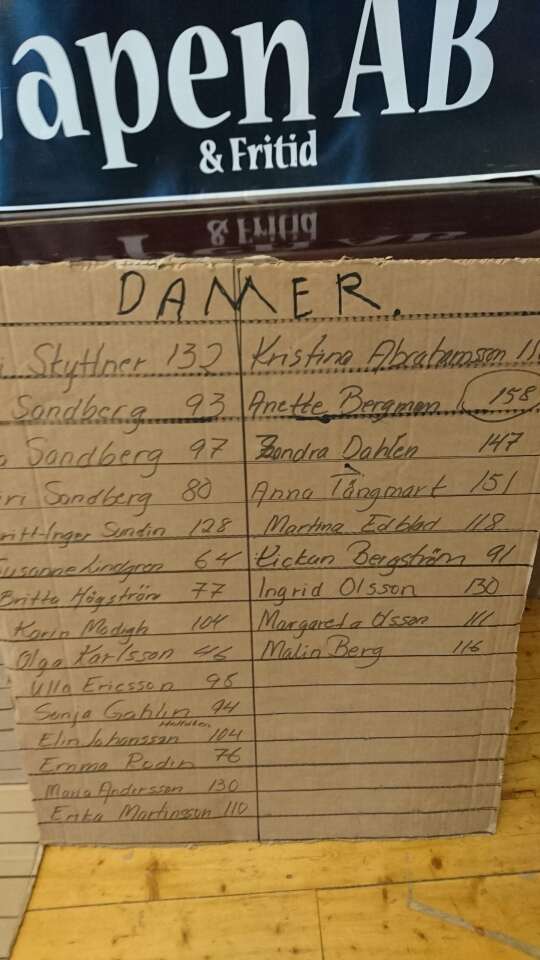 apen AB
& Fritid
DAMER.
Styttner 132
Sandberg 93
Sandberg 97
Sandberg 80
ritt-Inger Sundin 128
usanne Lindgren 64
Britta Högström 77
Karin Modigh 104
Olga Karlsson 46
Ulla Ericsson 98
Sonja Gahlin 94
Elin Johansson 104
Emma Rodin 76
Maria Andersson 130
Erika Martinsson 110
Kristina Abrahamsson 11
Anette Bergman 158
Sondra Dahlen 147
Anna Tångmart 151
Martina Edblad 118
Kickan Bergström 91
Ingrid Olsson 130
Margareta Olsson 111
Malin Berg 116